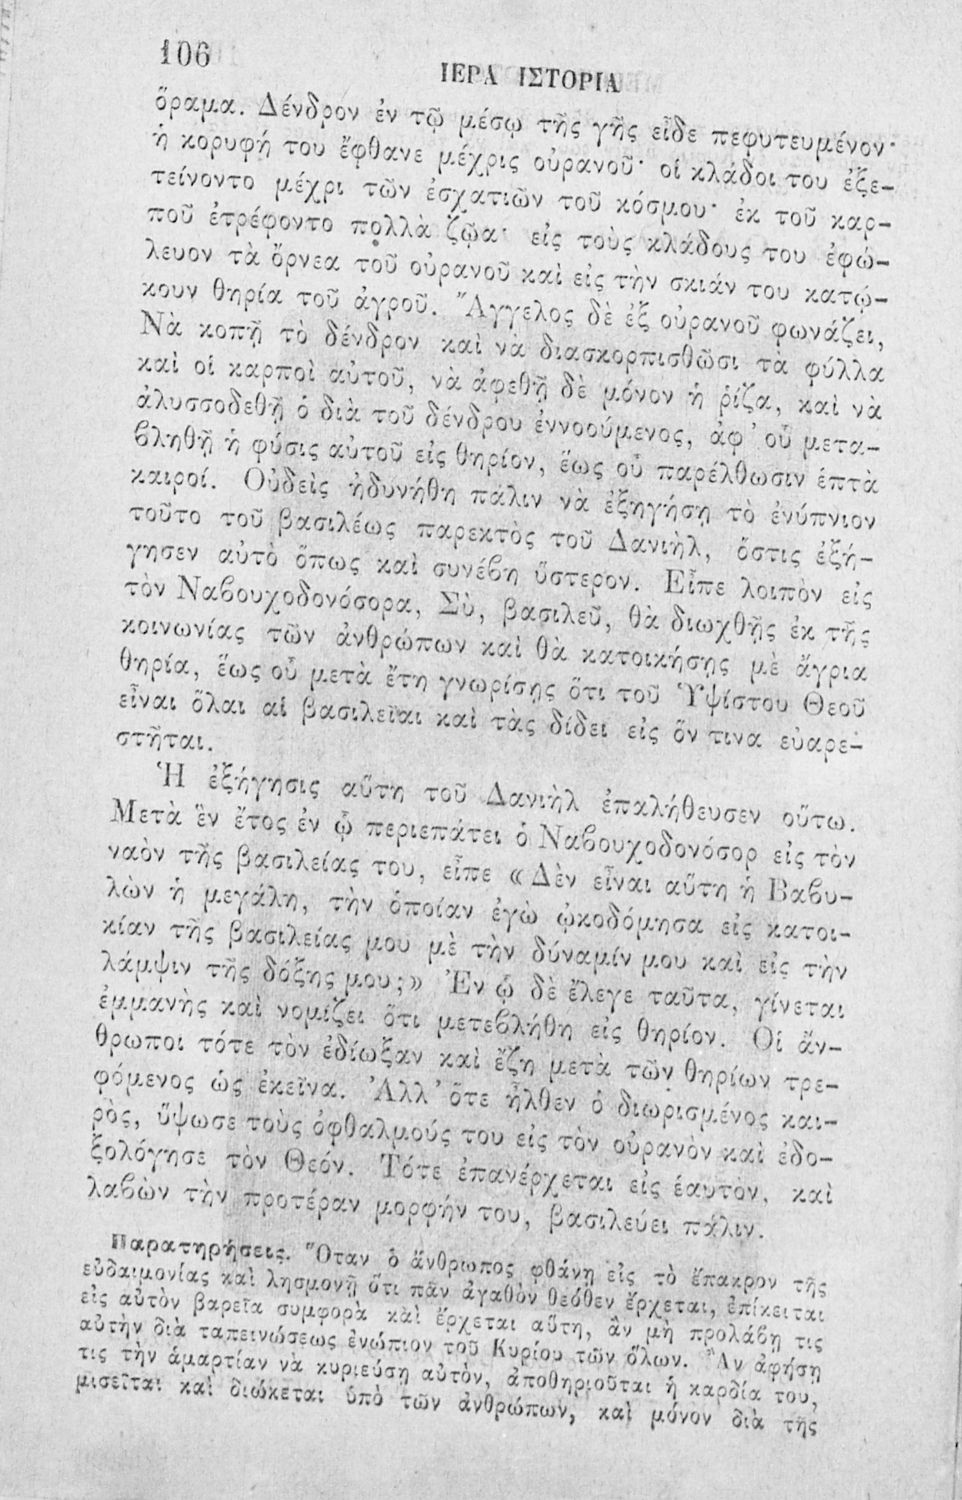 106
ΙΕΡΑ ΙΣΤΟΡΙΑ
ὅραμα. Δένδρον ἐν τῷ μέσῳ τῆς γῆς εἶδε πεφυτευμένον·
ἡ κορυφή του ἔφθανε μέχρις οὐρανοῦ· οἱ κλάδοι του ἐξε-
τείνοντο μέχρι τῶν ἐσχατιῶν τοῦ κόσμου· ἐκ τοῦ καρ-
ποῦ ἐτρέφοντο πολλὰ ζῷα· εἰς τοὺς κλάδους του ἐφώ-
λευον τὰ ὄρνεα τοῦ οὐρανοῦ καὶ εἰς τὴν σκιάν του κατῴ-
κουν θηρία τοῦ ἀγροῦ. Ἄγγελος δὲ ἐξ οὐρανοῦ φωνάζει,
Νὰ κοπῇ τὸ δένδρον καὶ νὰ διασκορπισθῶσι τὰ φύλλα
καὶ οἱ καρποὶ αὐτοῦ, νὰ ἀφεθῇ δὲ μόνον ἡ ῥίζα, καὶ νὰ
ἁλυσσοδεθῇ ὁ διὰ τοῦ δένδρου ἐννοούμενος, ἀφ' οὗ μετα-
βληθῇ ἡ φύσις αὐτοῦ εἰς θηρίον, ἕως οὗ παρέλθωσιν ἑπτὰ
καιροί. Οὐδεὶς ἠδυνήθη πάλιν νὰ ἐξηγήσῃ τὸ ἐνύπνιον
τοῦτο τοῦ βασιλέως παρεκτὸς τοῦ Δανιὴλ, ὅστις ἐξή-
γησεν αὐτὸ ὅπως καὶ συνέβη ὕστερον. Εἶπε λοιπὸν εἰς
τὸν Ναβουχοδονόσορα, Σὺ, βασιλεῦ, θὰ διωχθῇς ἐκ τῆς
κοινωνίας τῶν ἀνθρώπων καὶ θὰ κατοικήσῃς μὲ ἄγρια
θηρία, ἕως οὗ μετὰ ἔτη γνωρίσῃς ὅτι τοῦ Ὑψίστου Θεοῦ
εἶναι ὅλαι αἱ βασιλεῖαι καὶ τὰς δίδει εἰς ὅν τινα εὐαρε-
στῆται.
Ἡ ἐξήγησις αὕτη τοῦ Δανιὴλ ἐπαλήθευσεν οὕτω.
Μετὰ ἓν ἔτος ἐν ᾧ περιεπάτει ὁ Ναβουχοδονόσορ εἰς τὸν
ναὸν τῆς βασιλείας του, εἶπε «Δὲν εἶναι αὕτη ἡ Βαβυ-
λὼν ἡ μεγάλη, τὴν ὁποίαν ἐγὼ ᾠκοδόμησα εἰς κατοι-
κίαν τῆς βασιλείας μου μὲ τὴν δύναμίν μου καὶ εἰς τὴν
λάμψιν τῆς δόξης μου;» Ἐν ᾧ δὲ ἔλεγε ταῦτα, γίνεται
ἐμμανὴς καὶ νομίζει ὅτι μετεβλήθη εἰς θηρίον. Οἱ ἄν-
θρωποι τότε τὸν ἐδίωξαν καὶ ἔζη μετὰ τῶν θηρίων τρε-
φόμενος ὡς ἐκεῖνα. Ἀλλ' ὅτε ἦλθεν ὁ διωρισμένος και-
ρὸς, ὕψωσε τοὺς ὀφθαλμούς του εἰς τὸν οὐρανὸν καὶ ἐδο-
ξολόγησε τὸν Θεόν. Τότε ἐπανέρχεται εἰς ἑαυτὸν, καὶ
λαβὼν τὴν προτέραν μορφήν του, βασιλεύει πάλιν.
Παρατηρήσεις. Ὅταν ὁ ἄνθρωπος φθάνῃ εἰς τὸ ἔπακρον τῆς
εὐδαιμονίας καὶ λησμονῇ ὅτι πᾶν ἀγαθὸν θεόθεν ἔρχεται, ἐπίκειται
εἰς αὐτὸν βαρεῖα συμφορὰ καὶ ἔρχεται αὕτη, ἂν μὴ προλάβῃ τις
αὐτὴν διὰ ταπεινώσεως ἐνώπιον τοῦ Κυρίου τῶν ὅλων. Ἂν ἀφήσῃ
τις τὴν ἁμαρτίαν νὰ κυριεύσῃ αὐτὸν, ἀποθηριοῦται ἡ καρδία του,
μισεῖται καὶ διώκεται ὑπὸ τῶν ἀνθρώπων, καὶ μόνον διὰ τῆς